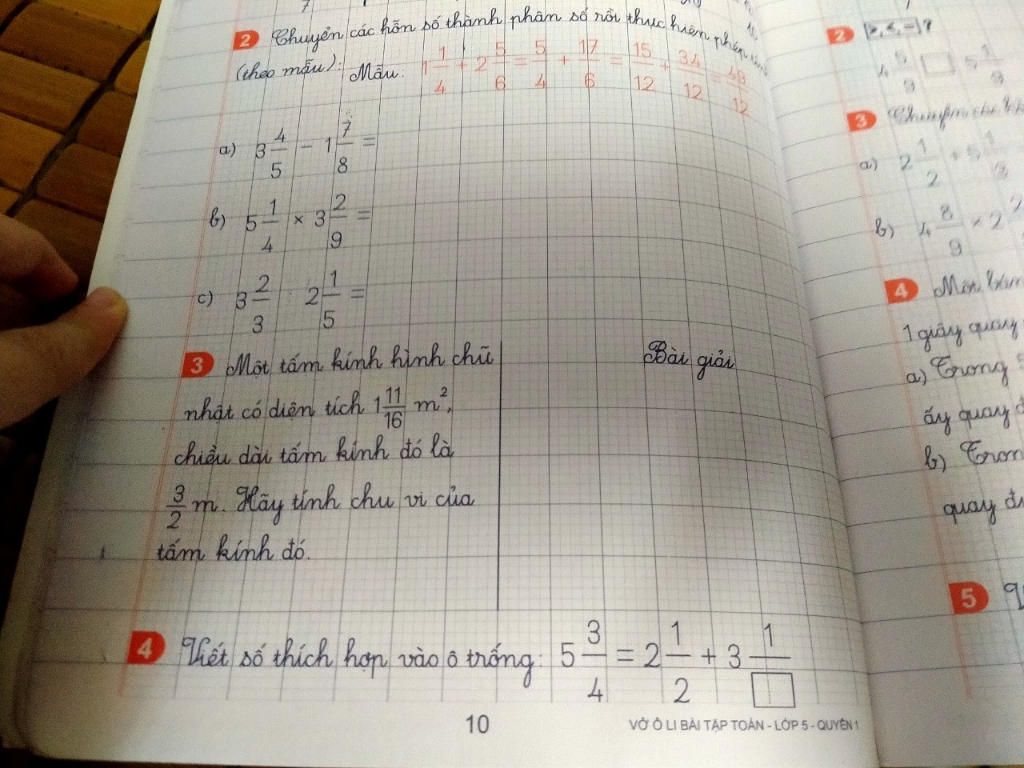 2 Chuyển các hỗn số thành phân số rồi thực hiện phép
(theo mẫu): Mẫu: 1 1/4 + 2 5/6 = 5/4 + 17/6 = 15/12 + 34/12 = 49/12
a) 3 4/5 - 1 7/8 =
b) 5 1/4 × 3 2/9 =
c) 3 2/3 : 2 1/5 =
3 Một tấm kính hình chữ
nhật có diện tích 1 11/16 m²,
chiều dài tấm kính đó là
3/2 m. Hãy tính chu vi của
tấm kính đó.
Bài giải
4 Viết số thích hợp vào ô trống: 5 3/4 = 2 1/2 + 3 1/□
10
VỞ Ô LI BÀI TẬP TOÁN - LỚP 5 - QUYỂN 1
2 >, <, = ?
4 5/9 □ 5 1/9
3
a) 2 1/2 + 5 1/3
b) 4 8/9 × 2
4
1 giây quay
a) Trong
ấy quay đ
b) Tron
quay đ
5